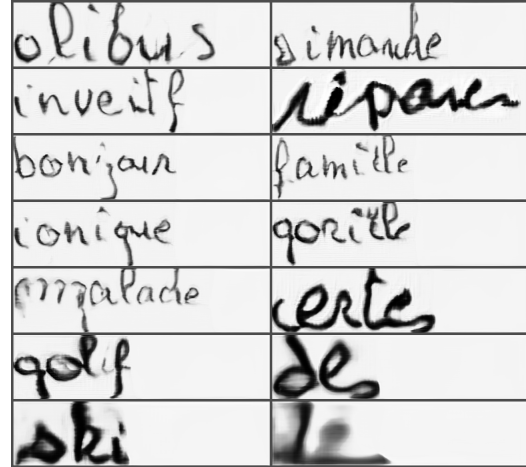 olibus simande
inveitf réparer
bonjour famille
ionique gorille
malade certes
golif des
ski